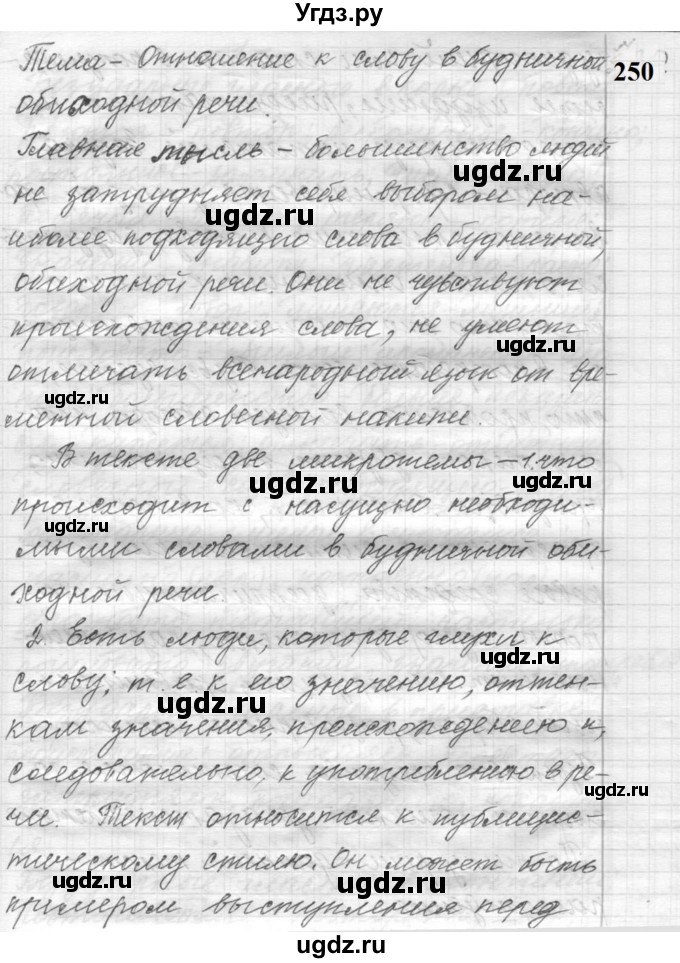 Угдз.ру
Тема – Отношение к слову в будничной
обиходной речи.
250
Главная мысль – большинство людей
не затрудняет себя выбором на-
ugdz.ru
ugdz.ru
иболее подходящего слова в будничной,
обиходной речи. Они не чувствуют
происхождения слова, не умеют
ugdz.ru
отличать всенародный язык от вре-
ugdz.ru
менной словесной накипи.
В тексте две микротемы – 1. что
ugdz.ru
ugdz.ru
происходит с насущно необходи-
ugdz.ru
мыми словами в будничной оби-
ходной речи.
2. Есть люди, которые глухи к
ugdz.ru
слову, т. е. к его значению, оттен-
ugdz.ru
кам значения, происхождению и,
следовательно, к употреблению в ре-
ugdz.ru
чи. Текст относится к публицис-
тическому стилю. Он может быть
ugdz.ru
ugdz.ru
примером выступления перед
ugdz.ru